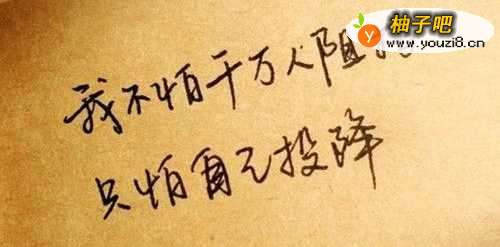 柚子吧
www.youzi8.cn
我不怕千万人阻
只怕自己投降